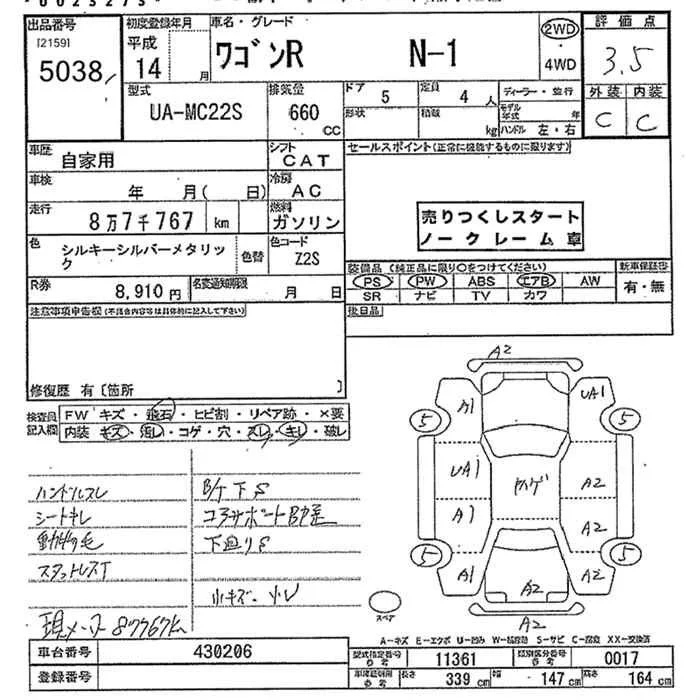 出品番号
[2159]
5038
初度登録年月
平成
14 月
車名・グレード
ワゴンR N-1
2WD
4WD
評価点
3.5
外装 内装
C C
型式
UA-MC22S
排気量
660 CC
ドア 5
定員 4 人
形状
積載 kg
ディーラー・並行
モデル年式 年
ハンドル 左・右
車歴 自家用
シフト CAT
車検 年 月( 日)
冷房 AC
走行 8万7千767 km
燃料 ガソリン
色 シルキーシルバーメタリック
色替
色コード Z2S
R券 8,910円
名変通知期限 月 日
セールスポイント(正常に機能するものに限ります)
売りつくしスタート
ノークレーム車
装備品(純正品に限り○をつけてください)
新車保証書
PS PW ABS エアB AW
有・無
SR ナビ TV カワ
後日品
注意事項申告欄(不具合内容等は具体的に記入して下さい)
修復歴 有〔箇所 〕
検査員記入欄
FW キズ・飛石・ヒビ割・リペア跡・×要
内装 キズ・汚れ・コゲ・穴・スレ・キレ・破レ
ハンドルスレ
シートキレ
動物の毛
スタットレスT
現メーター87767km
B/T下S
コアサポートBP歪
下廻りS
小キズ・凹
A2
A1
UA1
5
5
UA1
ハゲ
A2
A1
A2
5
5
A1
A2
A2
A2
スペア
A-キズ E-エクボ U-凹み W-補修跡 S-サビ C-腐食 XX-交換済
車台番号 430206
登録番号
型式指定番号 参考 11361
類別区分番号 参考 0017
車検証記載 参考
長さ 339 cm
幅 147 cm
高さ 164 cm